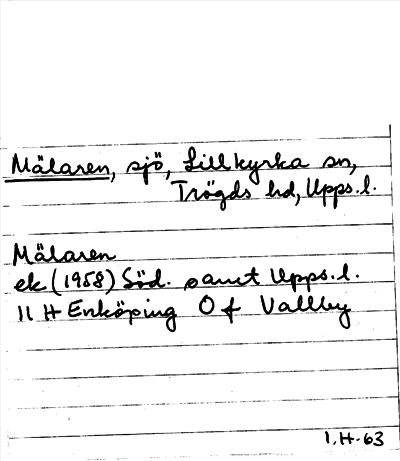 Mälaren, sjö, Lillkyrka sn,
Trögds hd, Upps. l.
Mälaren
ek (1958) Söd. samt Upps. l.
11 H Enköping O f Vallby
I.H-63